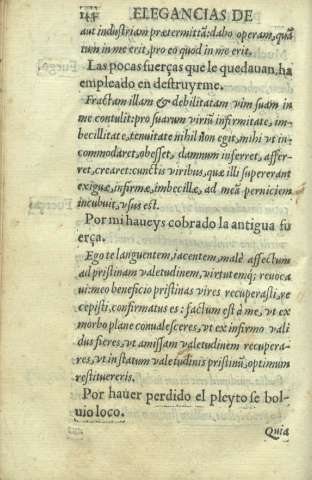 144 ELEGANCIAS DE
aut industriam prætermittã: dabo operam, quã
tum in me erit, pro eo quod in me erit.
Las pocas fuerças que le quedauan, ha
empleado en destruyrme.
Fractam illam & debilitatam vim suam in
me contulit: pro suarum viriũ infirmitate, im-
becillitate, tenuitate nihil non egit, mihi vt in-
commodaret, obesset, damnum inferret, affer-
ret, crearet: cunctis viribus, quæ illi supererant
exiguæ, infirmæ, imbecillæ, ad meã perniciem
incubuit, vsus est.
Por mi haueys cobrado la antigua fu
erça.
Ego te languentem, iacentem, malè affectum
ad pristinam valetudinem, virtutemq; reuoca
ui: meo beneficio pristinas vires recuperasti, re
cepisti, confirmatus es: factum est à me, vt ex
morbo plane conualesceres, vt ex infirmo vali
dus fieres, vt amissam valetudinem recupera-
res, vt in statum valetudinis pristinũ, optimum
restituereris.
Por hauer perdido el pleyto se bol-
uio loco.
Quia